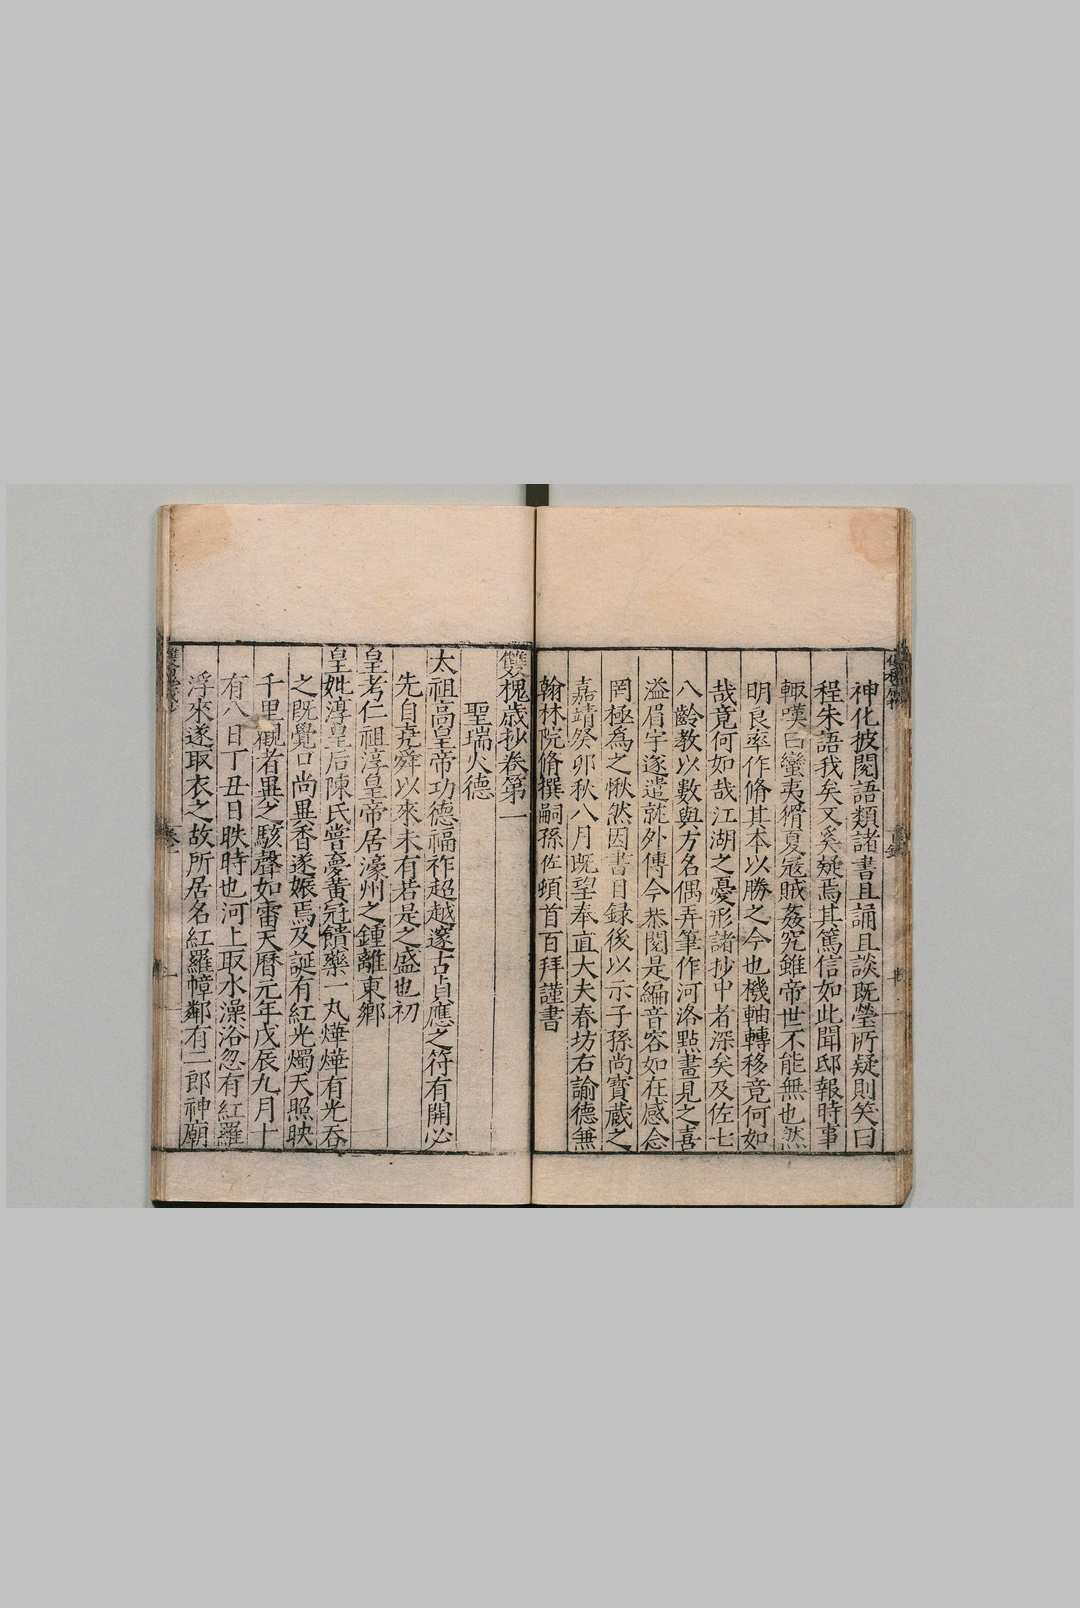 神化披閱語類諸書且誦且談既瑩所疑則笑曰
程朱語我矣又奚疑焉其篤信如此聞邸報時事
輙嘆曰蠻夷猾夏寇賊姦宄雖帝世不能無也然
明良率作脩其本以勝之今也機軸轉移竟何如
哉竟何如哉江湖之憂形諸抄中者深矣及佐七
八齡教以數與方名偶弄筆作河洛點畫見之喜
溢眉宇逐遣就外傳今恭閱是編音容如在感念
罔極為之愀然因書目録後以示子孫尚寳藏之
嘉靖癸卯秋八月既望奉直大夫春坊右諭德無
翰林院脩撰嗣孫佐頓首百拜謹書
雙槐歳抄卷第一
聖瑞火德
太祖高皇帝功德福祚超越邃古貞應之符有開必
先自堯舜以來未有若是之盛也初
皇考仁祖淳皇帝居濠州之鍾離東鄉
皇妣淳皇后陳氏嘗夢黃冠饋藥一丸燁燁有光吞
之既覺口尚異香遂娠焉及誕有紅光燭天照映
千里觀者異之駭聲如雷天曆元年戊辰九月十
有八日丁丑日昳時也河上取水澡浴忽有紅羅
浮來遂取衣之故所居名紅羅幛鄰有二郎神廟